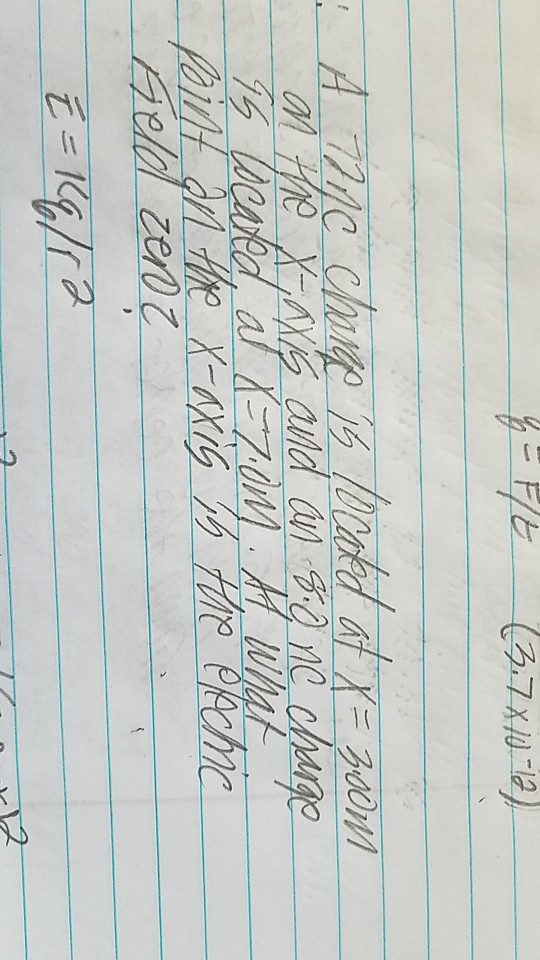 q = F/E (3.7 x 10^-12)
A 72 nc charge is located at x = 3.00m
on the x-axis and an 8.0 nc charge
is located at x=7.0m. At what
point on the x-axis is the electric
field zero?
E = kq/r2